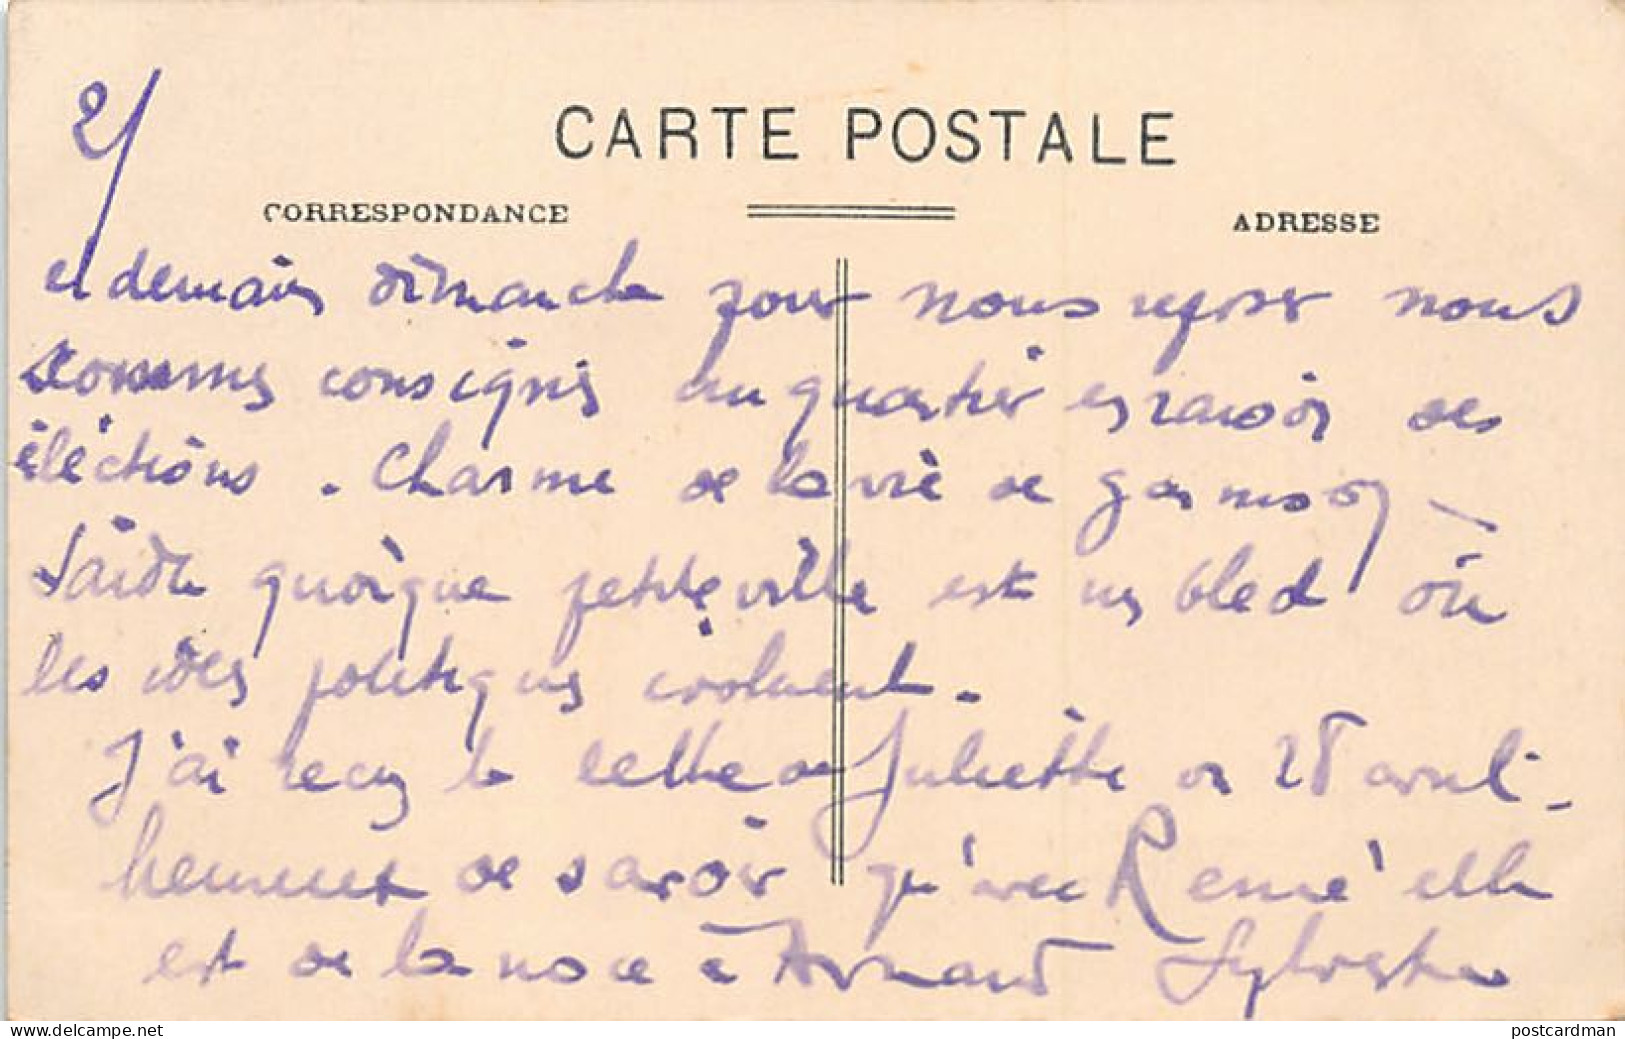 2/
CARTE POSTALE
CORRESPONDANCE
ADRESSE
et demain dimanche pour nous reposer nous
sommes consignés au quartier en raison des
éléctions. Charme de la vie de garnison
Saïda quoique petite ville est un bled où
les idées politiques évoluent.
J'ai reçu la lettre de Juliette du 28 avril.
heureux de savoir qu'avec Renée elle
est de la noce à Arnaud Sylvestre
delcampe.net
postcardman